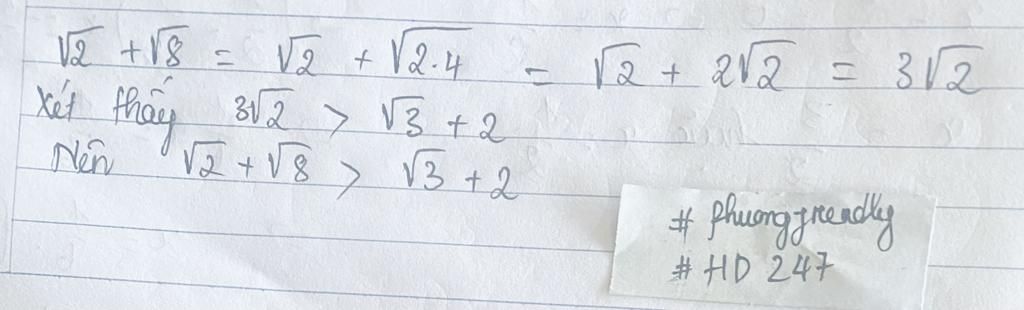 √2 + √8 = √2 + √2.4 = √2 + 2√2 = 3√2
Xét thấy 3√2 > √3 + 2
Nên √2 + √8 > √3 + 2
# Phuongfrendly
# HD 247